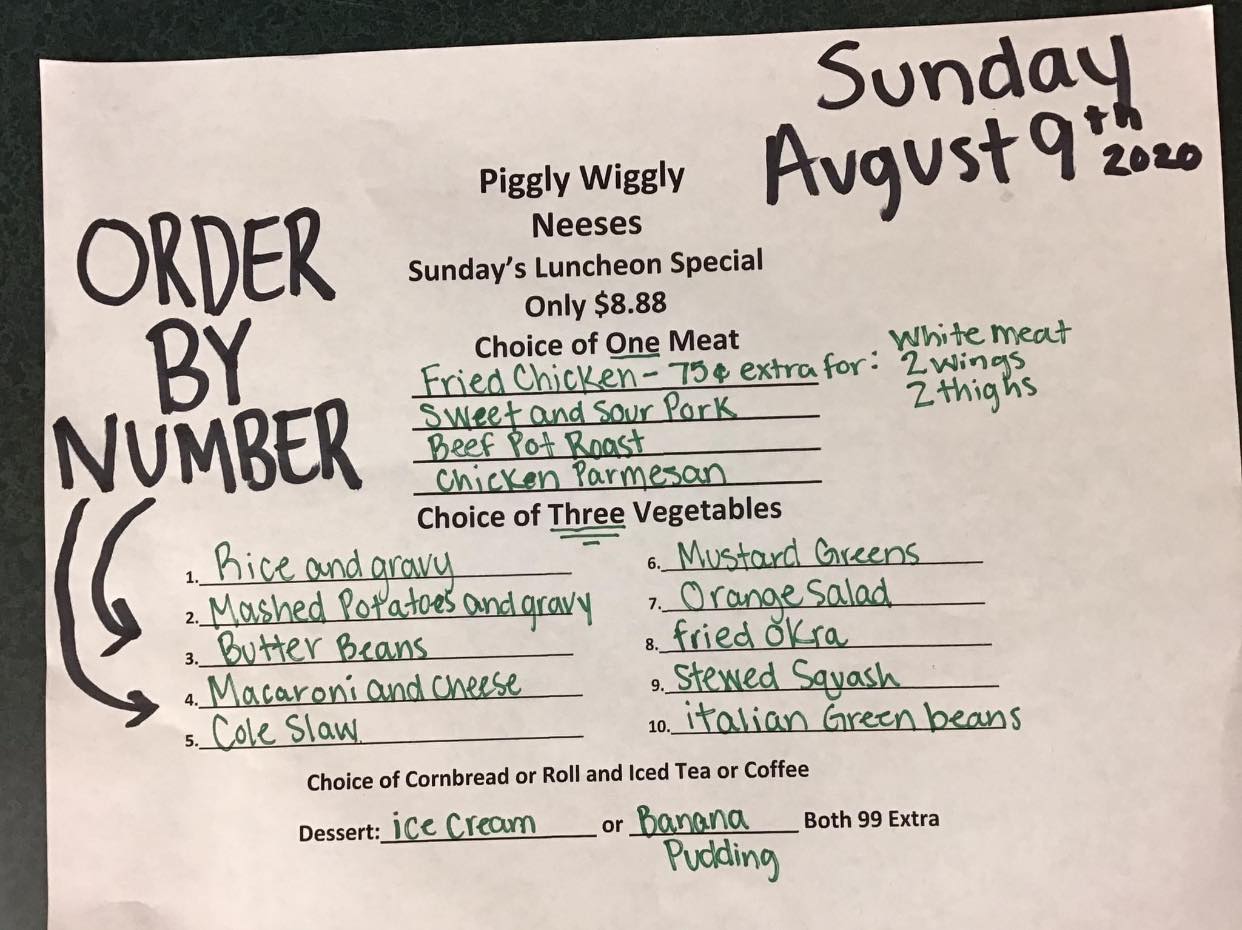 Sunday
August 9th
2020
Piggly Wiggly
Neeses
Sunday's Luncheon Special
Only $8.88
ORDER
BY
NUMBER
Choice of One Meat
Fried Chicken - 75¢ extra for: White meat
2 wings
2 thighs
Sweet and Sour Pork
Beef Pot Roast
Chicken Parmesan
Choice of Three Vegetables
1. Rice and gravy
2. Mashed Potatoes and gravy
3. Butter Beans
4. Macaroni and cheese
5. Cole Slaw
6. Mustard Greens
7. Orange Salad
8. fried Okra
9. Stewed Squash
10. italian Green beans
Choice of Cornbread or Roll and Iced Tea or Coffee
Dessert: ice cream or Banana Pudding Both 99 Extra